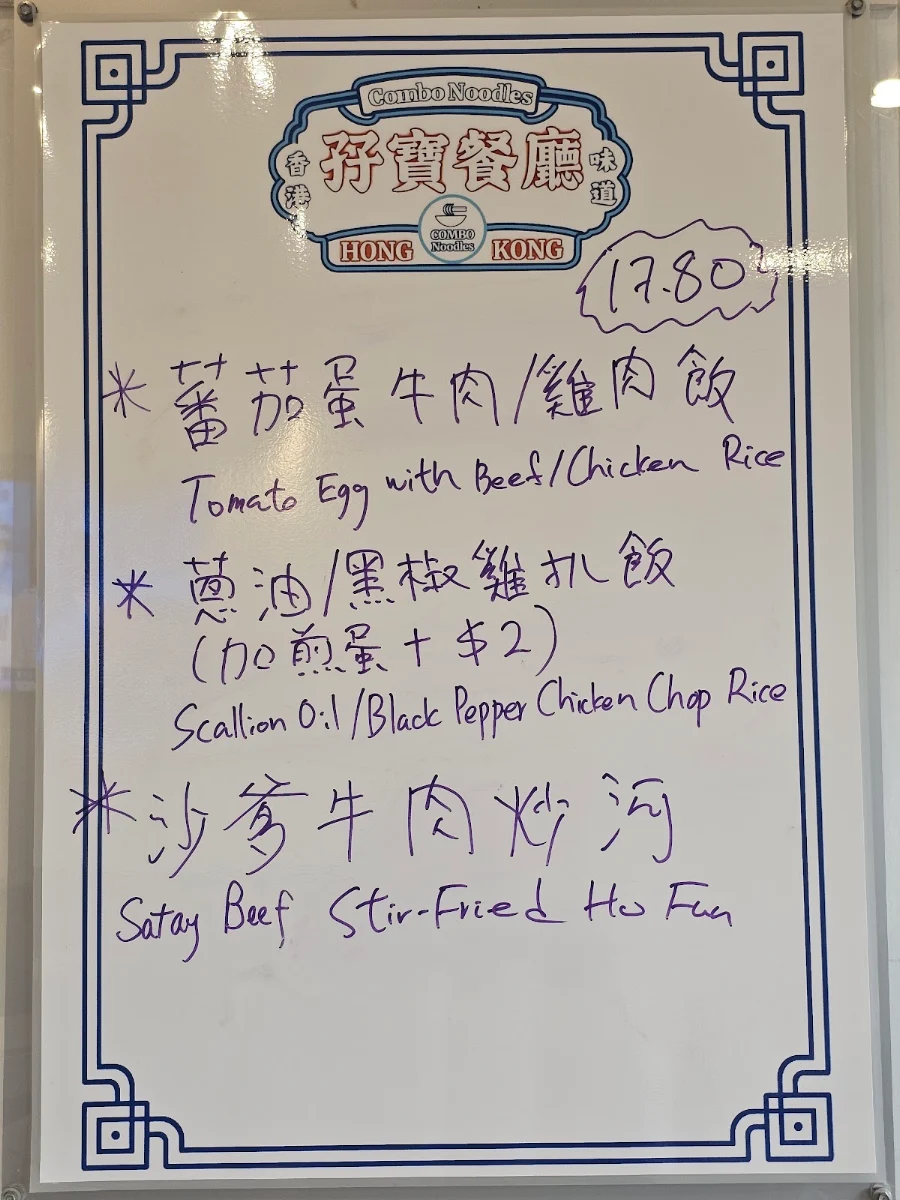 Combo Noodles
香港 孖寶餐廳 味道
COMBO
Noodles
HONG KONG
17.80
* 蕃茄蛋牛肉/雞肉飯
Tomato Egg with Beef/Chicken Rice
* 蔥油/黑椒雞扒飯
(加煎蛋 + $2)
Scallion Oil/Black Pepper Chicken Chop Rice
* 沙爹牛肉炒河
Satay Beef Stir-Fried Ho Fun